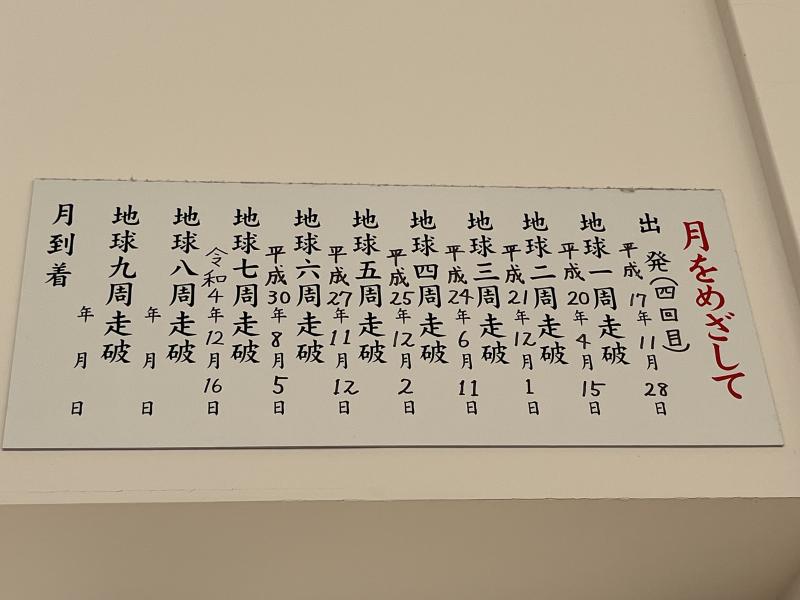 月をめざして
出発(四回目)
平成17年11月28日
地球一周走破
平成20年4月15日
地球二周走破
平成21年12月1日
地球三周走破
平成24年6月11日
地球四周走破
平成25年12月2日
地球五周走破
平成27年11月12日
地球六周走破
平成30年8月5日
地球七周走破
令和4年12月16日
地球八周走破
年月日
地球九周走破
年月日
月到着